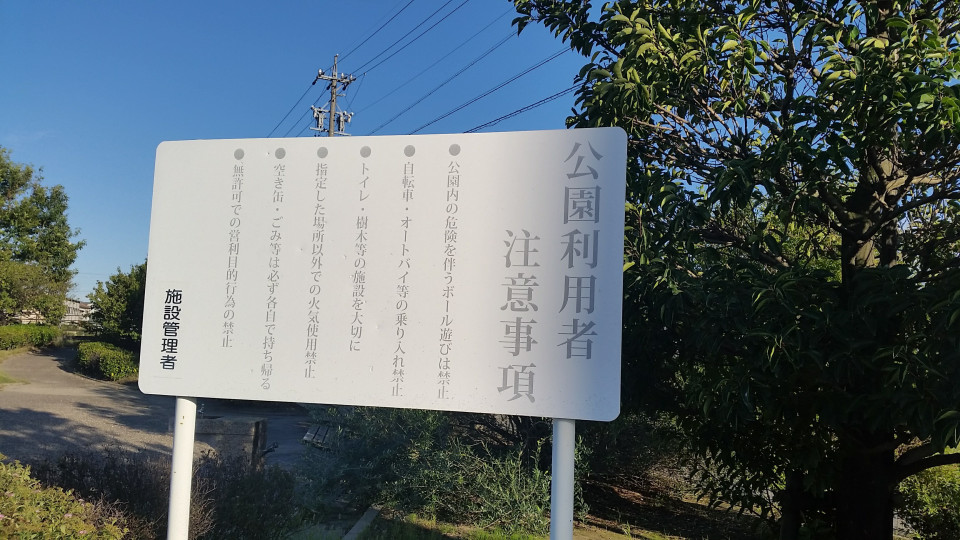 公園利用者
注意事項
●公園内の危険を伴うボール遊びは禁止
●自転車・オートバイ等の乗り入れ禁止
●トイレ・樹木等の施設を大切に
●指定した場所以外での火気使用禁止
●空き缶・ごみ等は必ず各自で持ち帰る
●無許可での営利目的行為の禁止
施設管理者